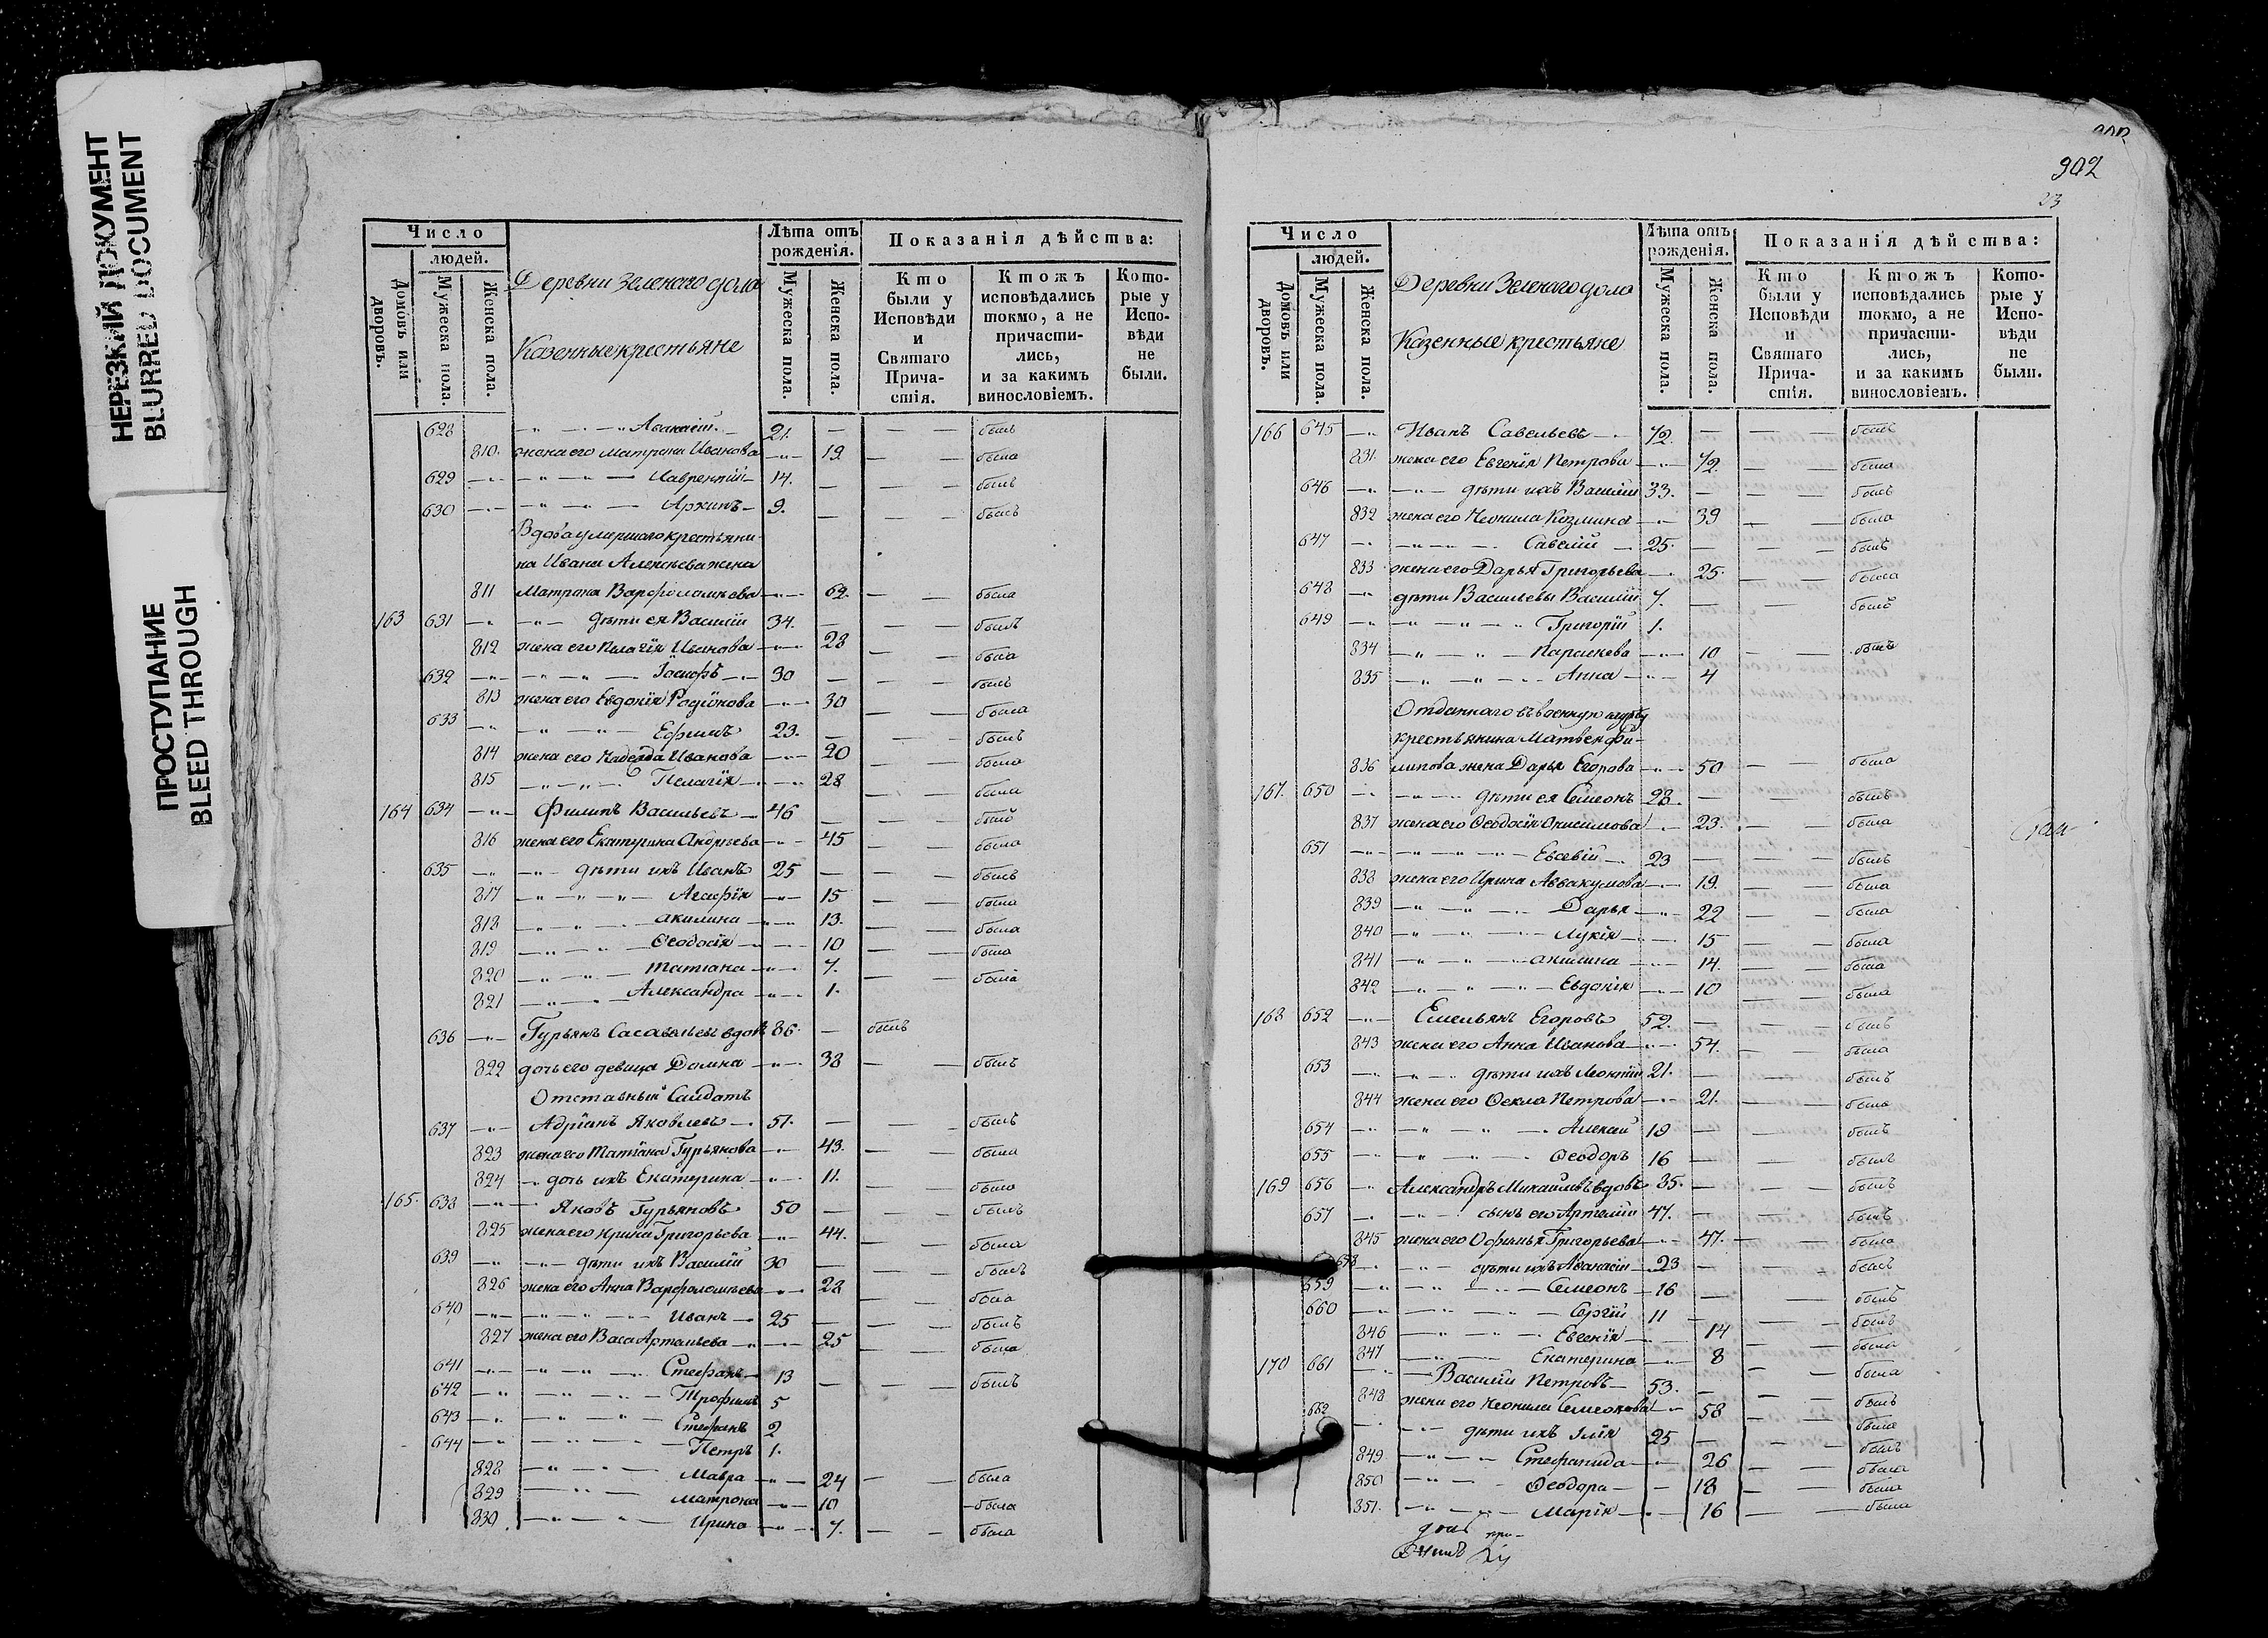 НЕРЕЗКИЙ ДОКУМЕНТ
BLURRED DOCUMENT
ПРОСТУПАНИЕ
BLEED THROUGH
Число
людей.
Домовъ или дворовъ.
Мужеска пола.
Женска пола.
Деревни Зеленаго дола
Казенные крестьяне
Лѣта отъ рожденія.
Мужеска пола.
Женска пола.
Показанія дѣйства:
Кто были у Исповѣди и Святаго Причастія.
Ктожъ исповѣдались токмо, а не причастились, и за какимъ винословіемъ.
Которые у Исповѣди не были.
628 Аѳанасій 21. былъ
810. жена его Матрона Иванова 19. была
629 Лаврентій 14. былъ
630 Архипъ 9. былъ
Вдова умершаго крестьяни-
на Ивана Алексѣева жена
811 Матрона Варфоломѣева 62. была
163 631 дѣти ея Василій 34. былъ
812 жена его Пелагія Иванова 28 была
632 Іосифъ 30 былъ
813 жена его Евдокія Родіонова 30 была
633 Ефимъ 23. былъ
814 жена его Надежда Иванова 20 была
815 Пелагія 28 была
164 634 Филипъ Васильевъ 46 былъ
816 жена его Екатерина Андреева 45 была
635 дѣти ихъ Иванъ 25 былъ
817 Агафія 15 была
818 Акилина 13. была
819 Ѳеодосія 10 была
820 Татіана 7. была
821 Александра 1.
636 Гурьянъ вдовъ 86. былъ
822 дочь его девица Домна 38 былъ
Отставный Салдатъ
637 Адріанъ Яковлевъ 51. былъ
823 жена его Татіана Гурьянова 43. была
824 дочь ихъ Екатерина 11. была
165. 638 Яковъ Гурьяновъ 50 былъ
825 жена его Ирина Григорьева 44. была
639 дѣти ихъ Василій 30 былъ
826 жена его Анна Варфоломѣева 28 была
640 Иванъ 25 былъ
827 жена его Васа Артемьева 25 была
641 Стефанъ 13 былъ
642 Трофимъ 5
643 Стефанъ 2
644 Петръ 1.
828 Мавра 24 была
829 Матрона 10 была
830 Ирина 7. была
902
23
Число
людей.
Домовъ или дворовъ.
Мужеска пола.
Женска пола.
Деревни Зеленаго дола
Казенные крестьяне
Лѣта отъ рожденія.
Мужеска пола.
Женска пола.
Показанія дѣйства:
Кто были у Исповѣди и Святаго Причастія.
Ктожъ исповѣдались токмо, а не причастились, и за какимъ винословіемъ.
Которые у Исповѣди не были.
166 645 Иванъ Савельевъ 72. былъ
831. жена его Евгенія Петрова 72. была
646 дѣти ихъ Василій 33. былъ
832 жена его Неонила Козмина 39 была
647 Савелій 25. былъ
833 жена его Дарья Григорьева 25. была
648 дѣти Васильевы Василій 7. былъ
649 Григорій 1.
834 Параскева 10 былъ
835 Анна 4
Отданнаго въ военную службу
крестьянина Матвея Фи-
836 липова жена Дарья Егорова 50 была
167. 650 дѣти ея Симеонъ 28. былъ
837 жена его Ѳеодосія Онисимова 23. была
651 Евсевій 23 былъ
838 жена его Ирина Аввакумова 19. была
839 Дарья 22 была
840 Лукія 15 была
841 Акилина 14. была
842 Евдокія 10 была
168 652 Емельянъ Егоровъ 52. былъ
843 жена его Анна Иванова 54. была
653 дѣти ихъ Леонтій 21. былъ
844 жена его Ѳекла Петрова 21. была
654 Алексій 19 былъ
655 Ѳеодоръ 16 былъ
169 656 Александръ Михаиловъ вдовъ 85. былъ
657 сынъ его Артемій 47. былъ
845 жена его Офимья Григорьева 47. была
658 дѣти ихъ Аѳанасій 23 былъ
659 Симеонъ 16 былъ
660 Сергій 11 былъ
846 Евгенія 14 была
847 Екатерина 8 была
170 661 Василій Петровъ 53. былъ
848 жена его Неонила Симеонова 58 была
662 дѣти ихъ Илія 25 былъ
849 Стефанида 26 была
850 Ѳеодора 18 была
851. Марія 16 была